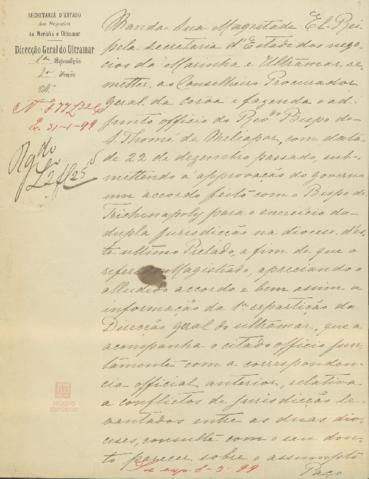 SECRETARIA D'ESTADO
dos Negocios
da Marinha e Ultramar
Direcção Geral do Ultramar
1.ª Repartição
2.ª Secção
Em 21-1-99
L.º 2 fl 25
Manda Sua Magestade El-Rei
pela secretaria d'Estado dos nego-
cios da Marinha e Ultramar re-
metter, ao Conselheiro Procurador
Geral da corôa e fazenda o ad-
junto officio do Rev.do Bispo de
S. Thomé de Meliapor, com data
de 22 de dezembro passado, sub-
mettendo á approvação do governo
um accordo feito com o Bispo de
Trichinopoly para o exercicio da
dupla jurisdicção na diocese d'es-
te ultimo Prelado, a fim de que o
referido Magistrado, apreciando o
alludido accordo e bem assim a
informação da 1.ª repartição da
Direcção geral do ultramar, que a
acompanha o citado officio jun-
tamente com a corresponden-
cia official anterior, relativa
a conflictos de jurisdicção le-
vantados entre as duas dio-
ceses, consulte com o seu dou-
to parecer sobre o assumpto
Paço